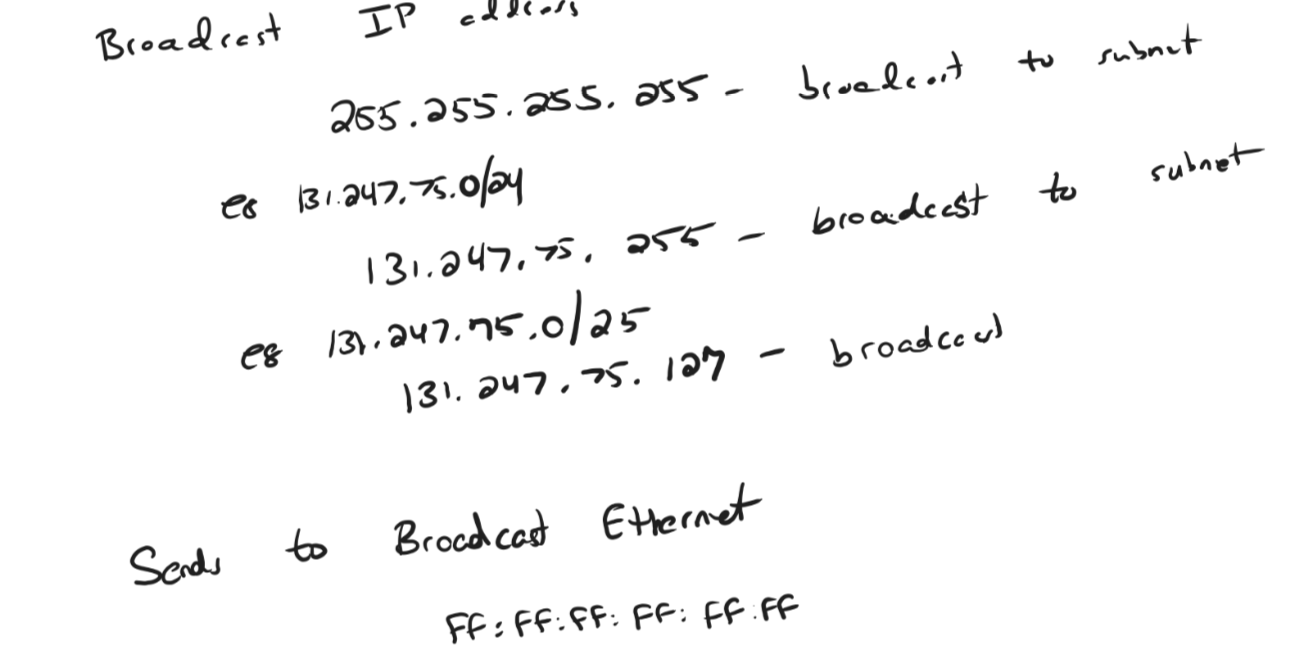 Broadcast IP address
255.255.255.255 - broadcast to subnet
eg 131.247.75.0/24
131.247.75.255 - broadcast to subnet
eg 131.247.75.0/25
131.247.75.127 - broadcast
Sends to Broadcast Ethernet
FF:FF:FF:FF:FF:FF